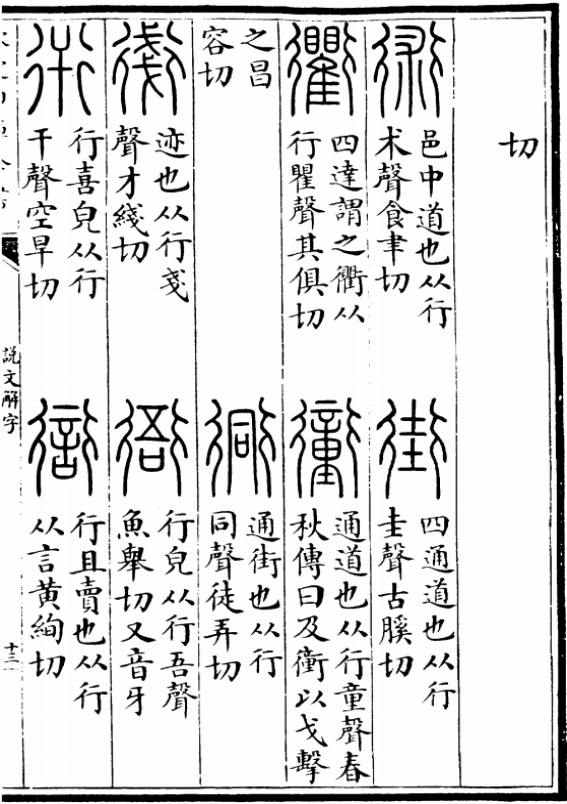 切
術
邑中道也从行
术聲食聿切
街
四通道也从行
圭聲古膎切
衢
四達謂之衢从
行瞿聲其俱切
𧘂
通道也从行童聲春
秋傳曰及衝以戈擊
之昌
容切
衕
通街也从行
同聲徒弄切
𧗸
迹也从行戔
聲才綫切
衙
行皃从行吾聲
魚舉切又音牙
衎
行喜皃从行
干聲空旱切
𧗳
行且賣也从行
从言黄絢切
説文解字
十三